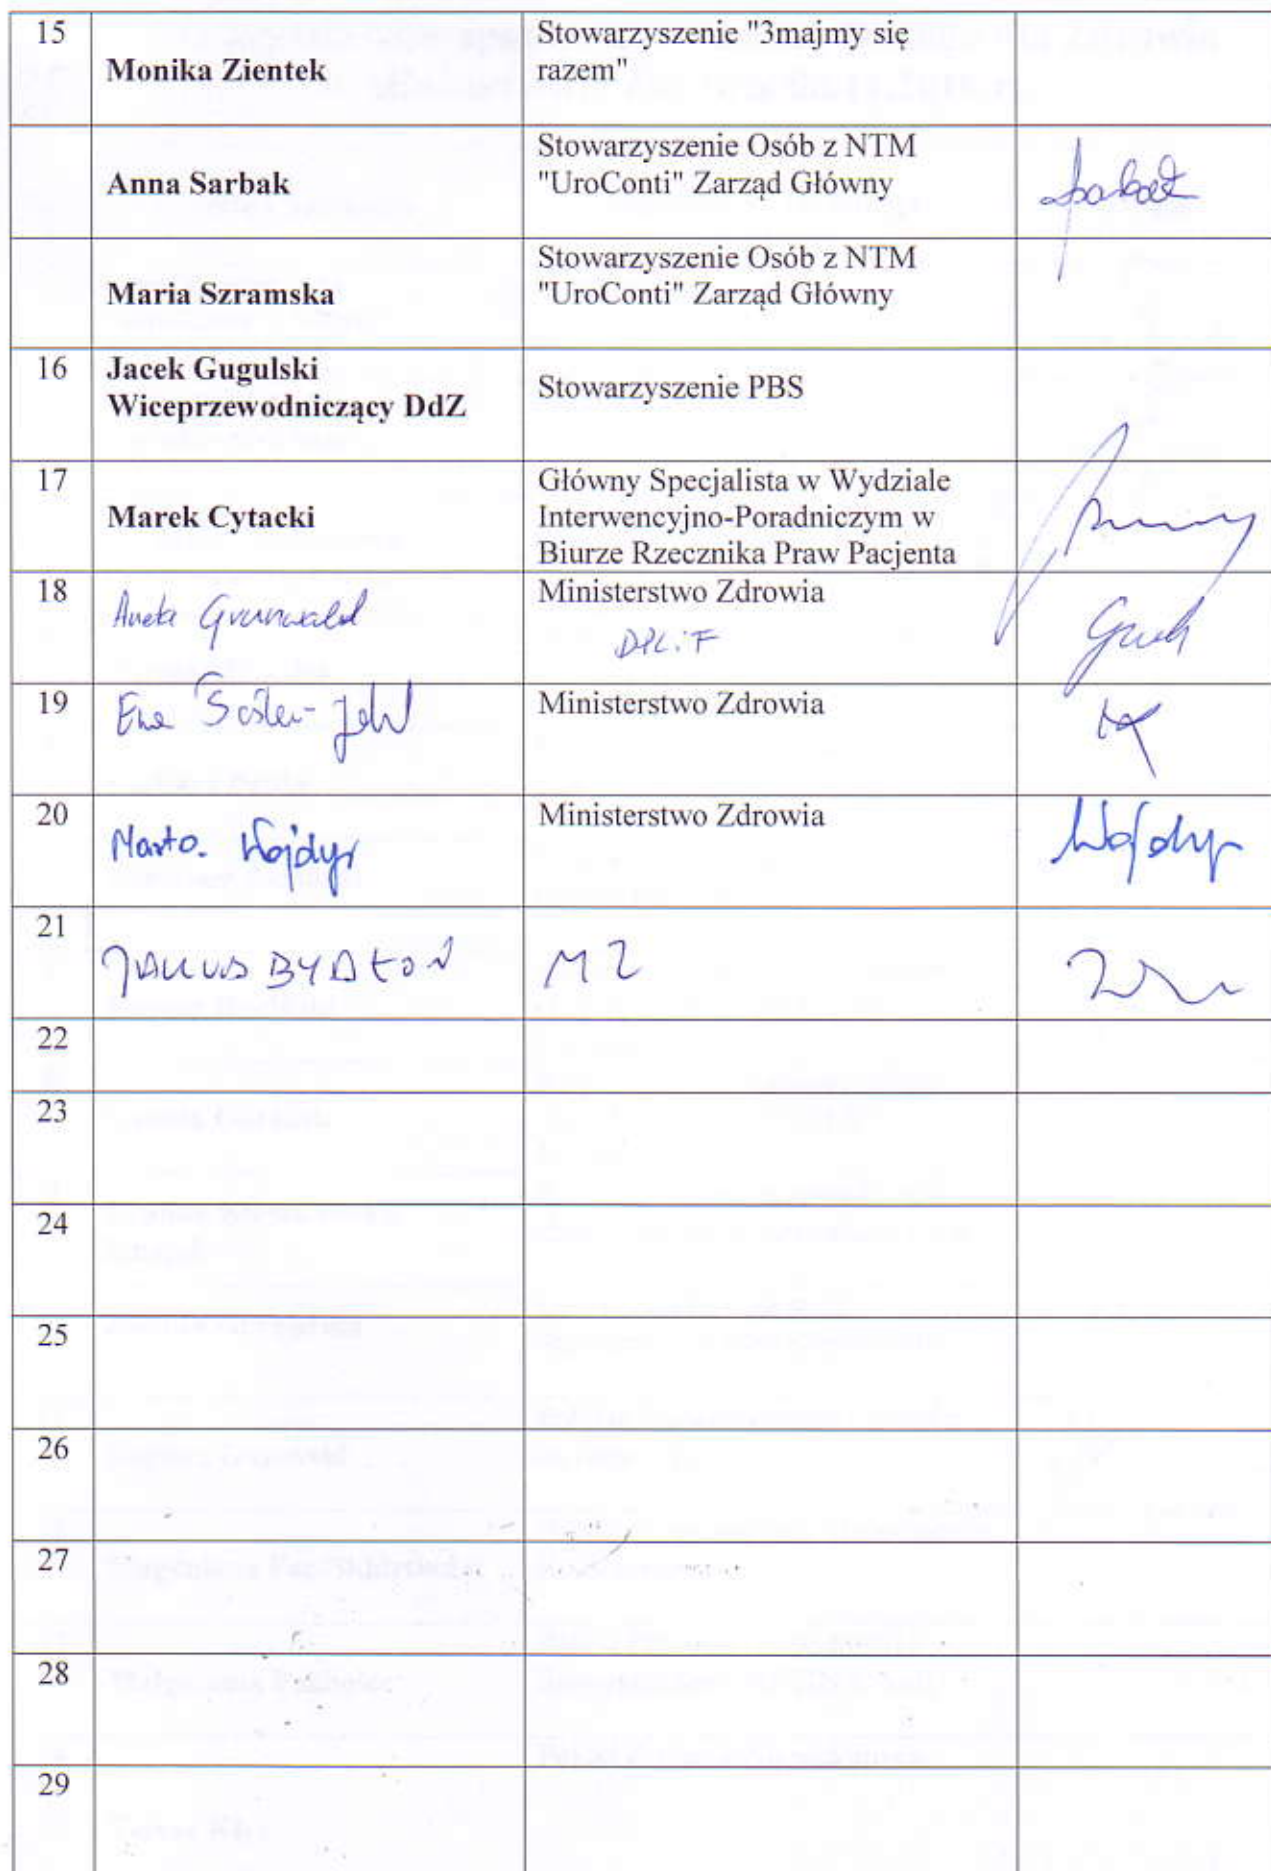 15
Monika Zientek
Stowarzyszenie "3majmy się
razem"
Anna Sarbak
Stowarzyszenie Osób z NTM
"UroConti" Zarząd Główny
Maria Szramska
Stowarzyszenie Osób z NTM
"UroConti" Zarząd Główny
16
Jacek Gugulski
Wiceprzewodniczący DdZ
Stowarzyszenie PBS
17
Marek Cytacki
Główny Specjalista w Wydziale
Interwencyjno-Poradniczym w
Biurze Rzecznika Praw Pacjenta
18
Aneta Grunwald
Ministerstwo Zdrowia
19
Ministerstwo Zdrowia
20
Marta Wojdyr
Ministerstwo Zdrowia
21
BYDŁOŃ
MZ
22
23
24
25
26
27
28
29